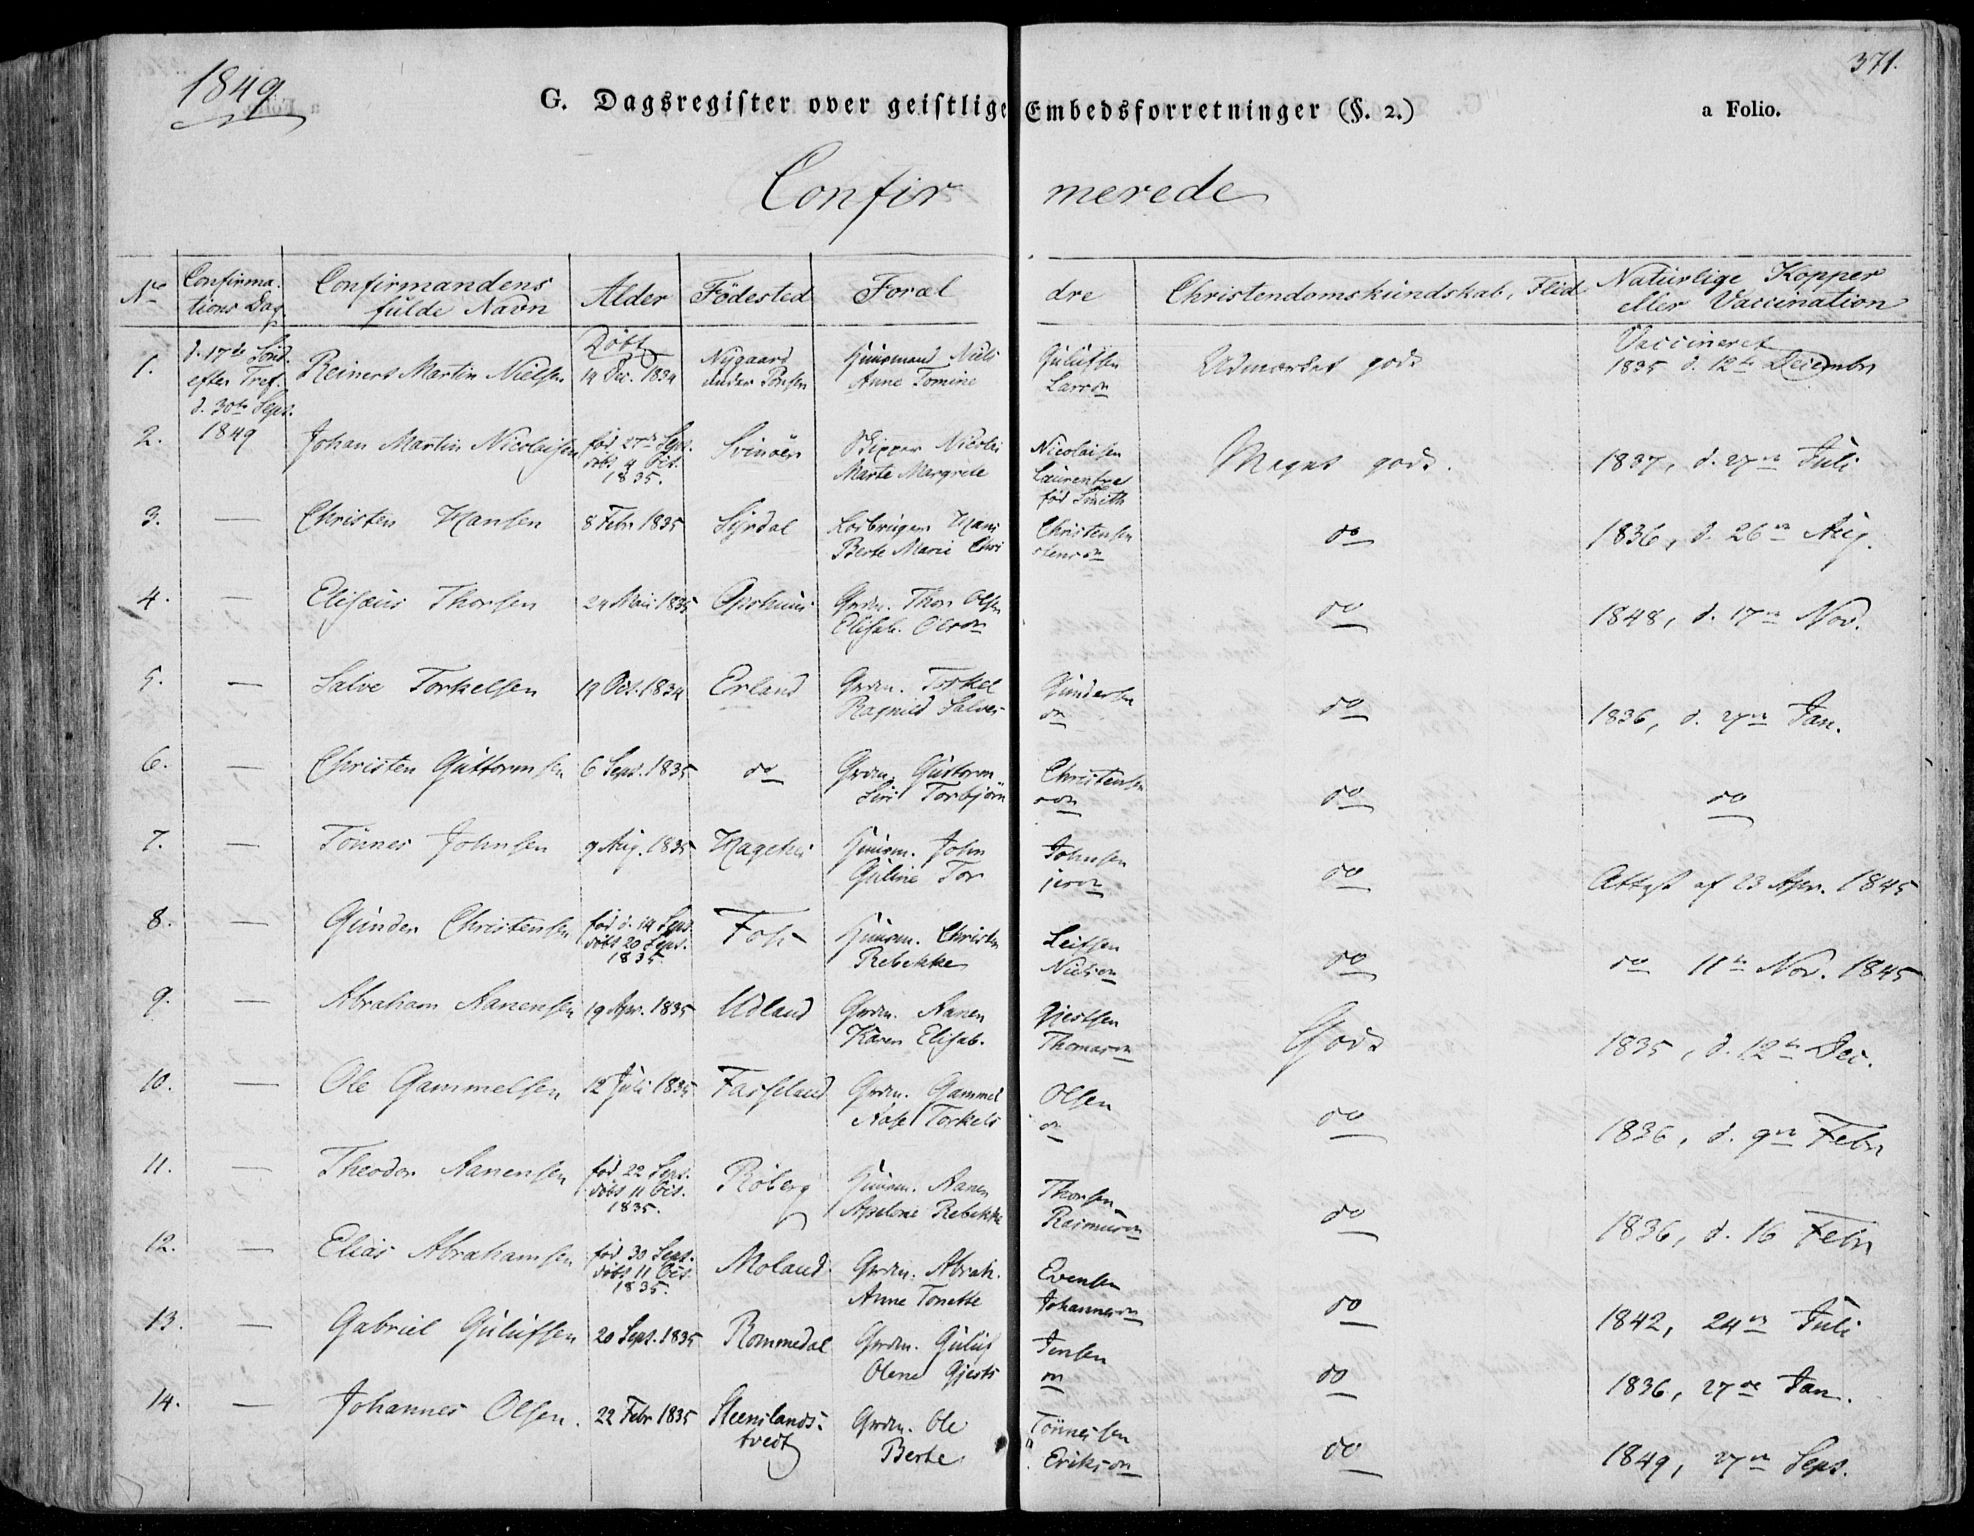 1849
371.
G. Dagsregister over geistlige Embedsforretninger (§. 2.)
a Folio.
Confirmerede
No Confirmations Dag Confirmandens fulde Navn Alder Födested Forældre Christendomskundskab, Flid Naturlige Kopper eller Vaccination
1. d. 17de Sönd. Döbt Nygaard Huusmand Niels Gulufsen Udmærket godt Vaccineret
efter Tref. Reinert Martin Nielsen 14 Dec. 1834 under Anne Tomine Larsdn 1835 d. 12te Decembr
d. 30te Sept.
1849
2. Johan Martin Nicolaisen föd 27de Sept. Svinöen Skipper Nicolai Nicolaisen Meget godt. 1837, d. 27de Juli
döbt 4 Oct. Marte Margrete Laurentze
1835. föd Smith
3. — Christen Hansen 8 Febr 1835 Syrdal Losbruger Hans Christensen do 1836, d. 26de Aug.
Berte Marie Christensdn
4. — Elisæus Thorsen 24 Mai 1835 Opshuus Grdm. Thor Olsen do 1848, d. 17de Nov.
Elisab. Olsdn
5. — Salve Torkelsen 19 Oct. 1834 Erland Grdm. Torkel Gundersen do 1836, d. 27de Jan.
Ragnild Salvesdn
6. — Christen Guttormsen 6 Sept. 1835 do Grdm. Guttorm Christensen do do
Siri Torbjörnsdn
7. — Tönnes Johnsen 9 Aug. 1835 Huusm. John Johnsen do Attest af 23 Apr. 1845
Guline Torjesdn
8. — Gunder Christensen föd d. 14 Sept. Foss Huusm. Christen Leifsen do do 11te Nov. 1845
döbt 20 Sept. Rebekke Nielsdn
1835
9. — Abraham Aanensen 19 Apr. 1835 Udland Grdm. Aanen Gjertsen Godt 1835, d. 12te Dec.
Karen Elisab. Thomasdn
10. — Ole Gammelsen 12 Juli 1835 Fasseland Grdm. Gammel Olsen do 1836, d. 9de Febr
Aase Torkelsdn
11. — Theodor Aanensen föd 22 Sept. Röberg Huusm. Aanen Thorsen do 1836, d. 16 Febr
döbt 11 Oct. Apelone Rebekke Rasmusdn
1835.
12. — Elias Abrahamsen föd 30 Sept. Moland Grdm. Abrah. Evensen do 1842, 24de Juli
döbt 11 Oct. Anne Tonette Johannesdn
1835.
13. — Gabriel Gulufsen 20 Sept. 1835 Rommedal Grdm. Guluf Jensen do 1836, 27de Jan.
Olene Gjertsdn
14. — Johannes Olsen. 22 Febr 1835 Steenslands- Grdm. Ole Tönnessen do 1849, 27de Sept.
tvedt Berte Eriksdn